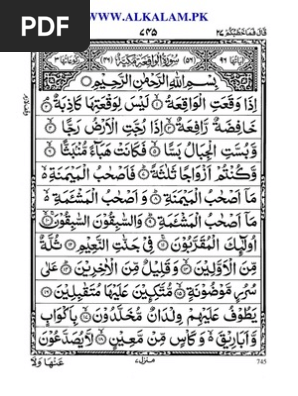 WWW.ALKALAM.PK
PDF
قال فما خطبکم ۲۷
۷۴۵
سورة الواقعة مكية
بسم الله الرحمن الرحيم
اِذَا وَقَعَتِ الْوَاقِعَةُ ۙ لَيْسَ لِوَقْعَتِهَا كَاذِبَةٌ ۘ
خَافِضَةٌ رَّافِعَةٌ ۙ اِذَا رُجَّتِ الْاَرْضُ رَجًّا ۙ
وَّبُسَّتِ الْجِبَالُ بَسًّا ۙ فَكَانَتْ هَبَآءً مُّنْۢبَثًّا ۙ
وَّكُنْتُمْ اَزْوَاجًا ثَلٰثَةً ؕ فَاَصْحٰبُ الْمَيْمَنَةِ ۙ
مَاۤ اَصْحٰبُ الْمَيْمَنَةِ ؕ وَاَصْحٰبُ الْمَشْـَٔمَةِ ۙ
مَاۤ اَصْحٰبُ الْمَشْـَٔمَةِ ؕ وَالسّٰبِقُوْنَ السّٰبِقُوْنَ ۙ
اُولٰٓئِكَ الْمُقَرَّبُوْنَ ۚ فِيْ جَنّٰتِ النَّعِيْمِ ثُلَّةٌ
مِّنَ الْاَوَّلِيْنَ ۙ وَقَلِيْلٌ مِّنَ الْاٰخِرِيْنَ ؕ عَلٰى
سُرُرٍ مَّوْضُوْنَةٍ ۙ مُّتَّكِـِٕيْنَ عَلَيْهَا مُتَقٰبِلِيْنَ
يَطُوْفُ عَلَيْهِمْ وِلْدَانٌ مُّخَلَّدُوْنَ ۙ بِاَكْوَابٍ
وَّاَبَارِيْقَ ۙ وَكَاْسٍ مِّنْ مَّعِيْنٍ ۙ لَّا يُصَدَّعُوْنَ
عَنْهَا وَلَا
منزل ۷
745